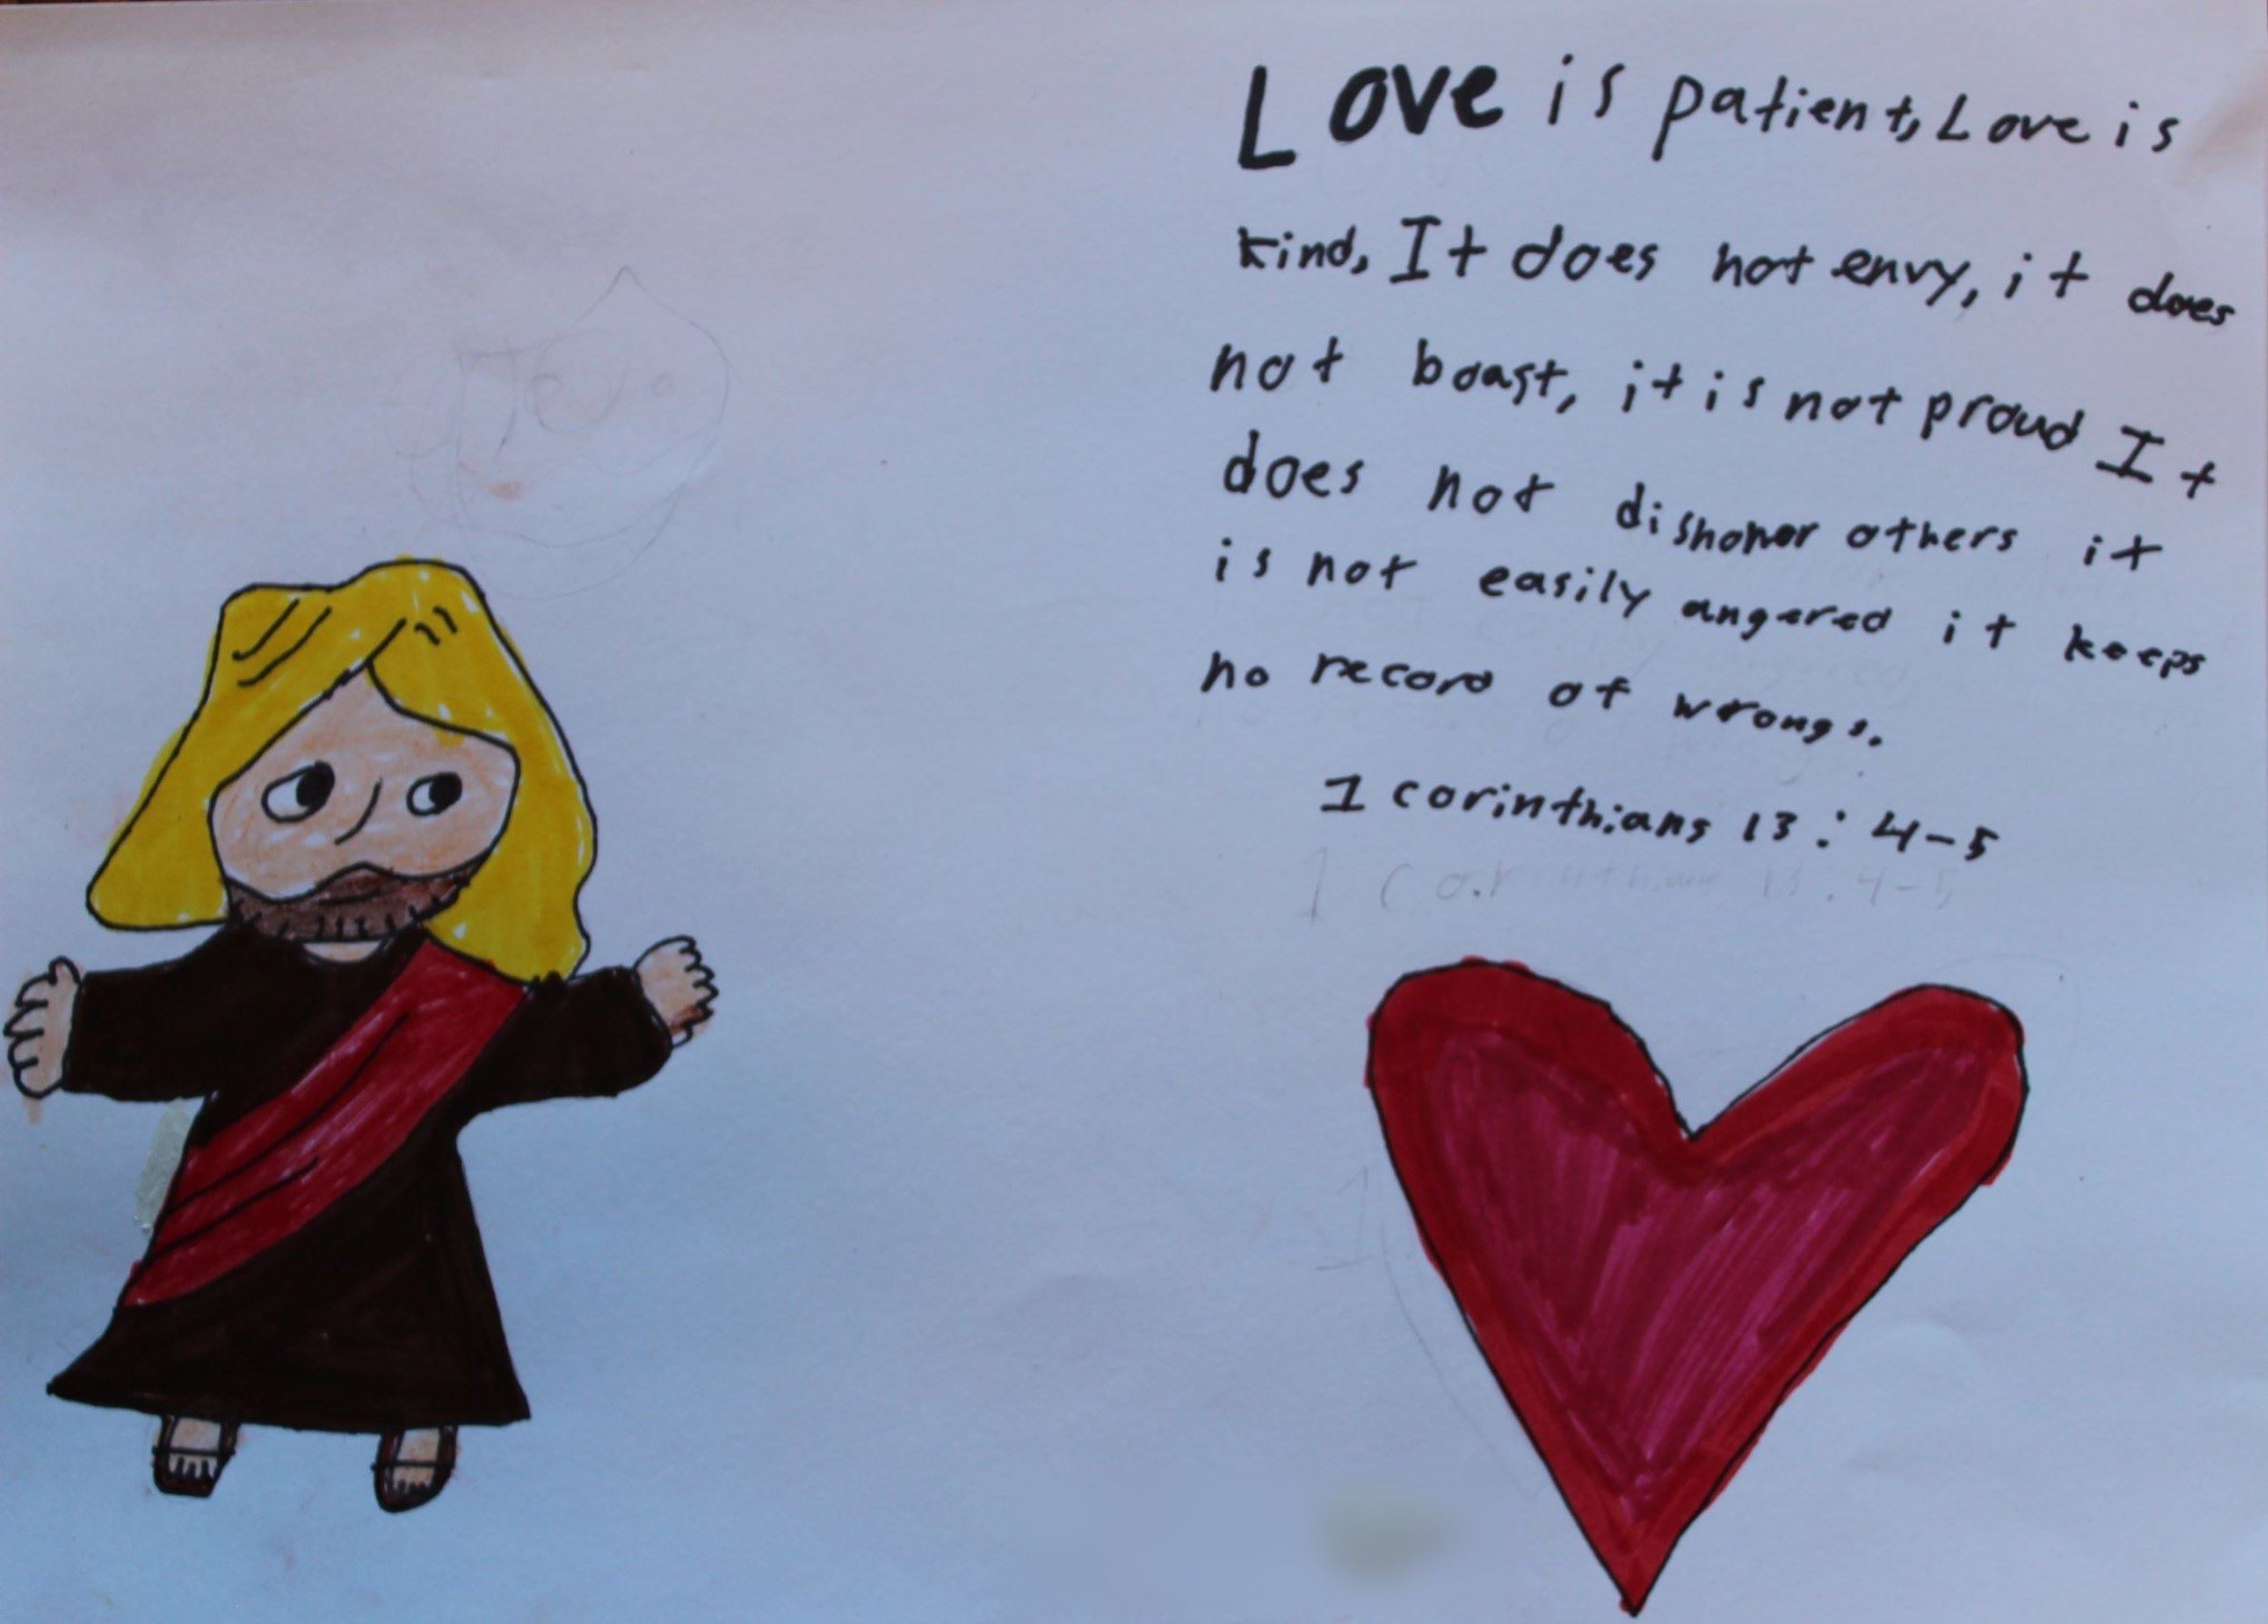 Love is patient, Love is
kind, It does not envy, it does
not boast, it is not proud It
does not dishonor others it
is not easily angered it keeps
no record of wrongs.
1 corinthians 13:4-5
1 Corinthians 13:4-5